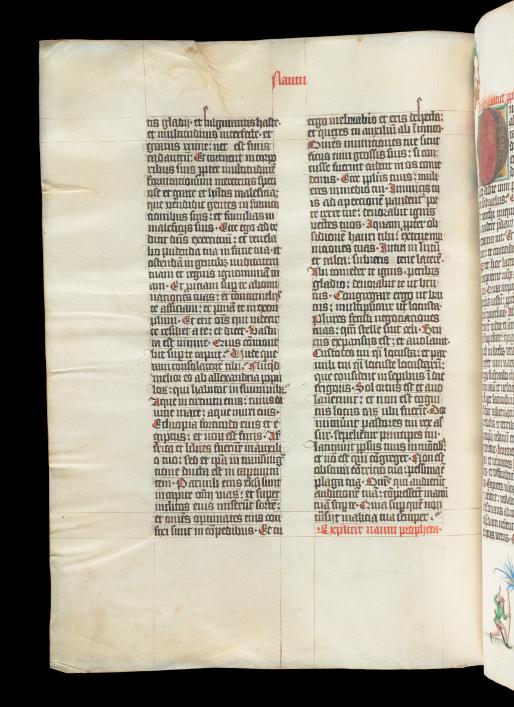 Naum
tis gladii· et fulgurantis haste·
et multitudinis interfecte· et
gravis ruine: nec est finis
cadaverum· Et corruent in corpo
ribus suis propter multitudinem
fornicationum meretricis speci
ose et grate et habentis maleficia:
que vendidit gentes in fornica
tionibus suis· et familias in
maleficiis suis· Ecce ego ad te
dicit dominus exercituum: et revela
bo pudenda tua in facie tua· et
ostendam in gentibus nuditatem
tuam et regnis ignominiam tu
am· Et proiciam super te abomi
nationes tuas: et contumeliis
te afficiam: et ponam te in exem
plum· Et erit omnis qui viderit
te resiliet a te: et dicet· Vasta
ta est ninive· Quis commove
bit super te caput· Unde que
ram consolatorem tibi· Nunquid
melior es ab allexandria popu
lorum: que habitat in fluminibus·
Aque in circuitu eius: cuius di
vitie mare: aque muri eius·
Ethyopia fortitudo eius et e
giptus: et non est finis· Af
frica et libies fuerunt in auxili
o tuo: sed et ipsa in transmigra
tione ducta est in captivita
tem· Parvuli eius elisi sunt
in capite omnium viarum: et super
inclitos eius miserunt sortem:
et omnes optimates eius con
fixi sunt in compedibus· Et tu
ergo inebriaberis et eris despecta·
et queres tu auxilium ab inimico·
Omnes munitiones tue sicut
ficus cum grossis suis: si con
cusse fuerint cadent in os come
dentis· Ecce populus tuus: muli
eres in medio tui· Inimicis tu
is ad apercionem pandentur por
te terre tue: devorabit ignis
vectes tuos· Aquam propter ob
sidionem hauri tibi: extrue mu
nitiones tuas· Intra in lutum
et calca: subigens tene laterem·
Ibi comedet te ignis· peribis
gladio: devorabit te ut bru
cus· Congregare ergo ut bru
cus: multiplicare ut locusta·
Plures fecisti negociaciones
tuas: quam stelle sunt celi· Bru
cus expansus est: et avolavit·
Custodes tui quasi locuste: et par
vuli tui quasi locuste locustarum:
que considunt in sepibus in die
frigoris· Sol ortus est et avo
laverunt: et non est cogni
tus locus eius ubi fuerint· Dor
mitaverunt pastores tui rex as
sur· sepelientur principes tui·
latitavit populus tuus in montibus:
et non est qui congreget· Non est
obscura contricio tua: pessima est
plaga tua· Omnes qui audierunt
auditionem tuam: compresserunt manum
tuam super te· Quia super quem non
transiit malicia tua semper·
Explicit naum propheta·